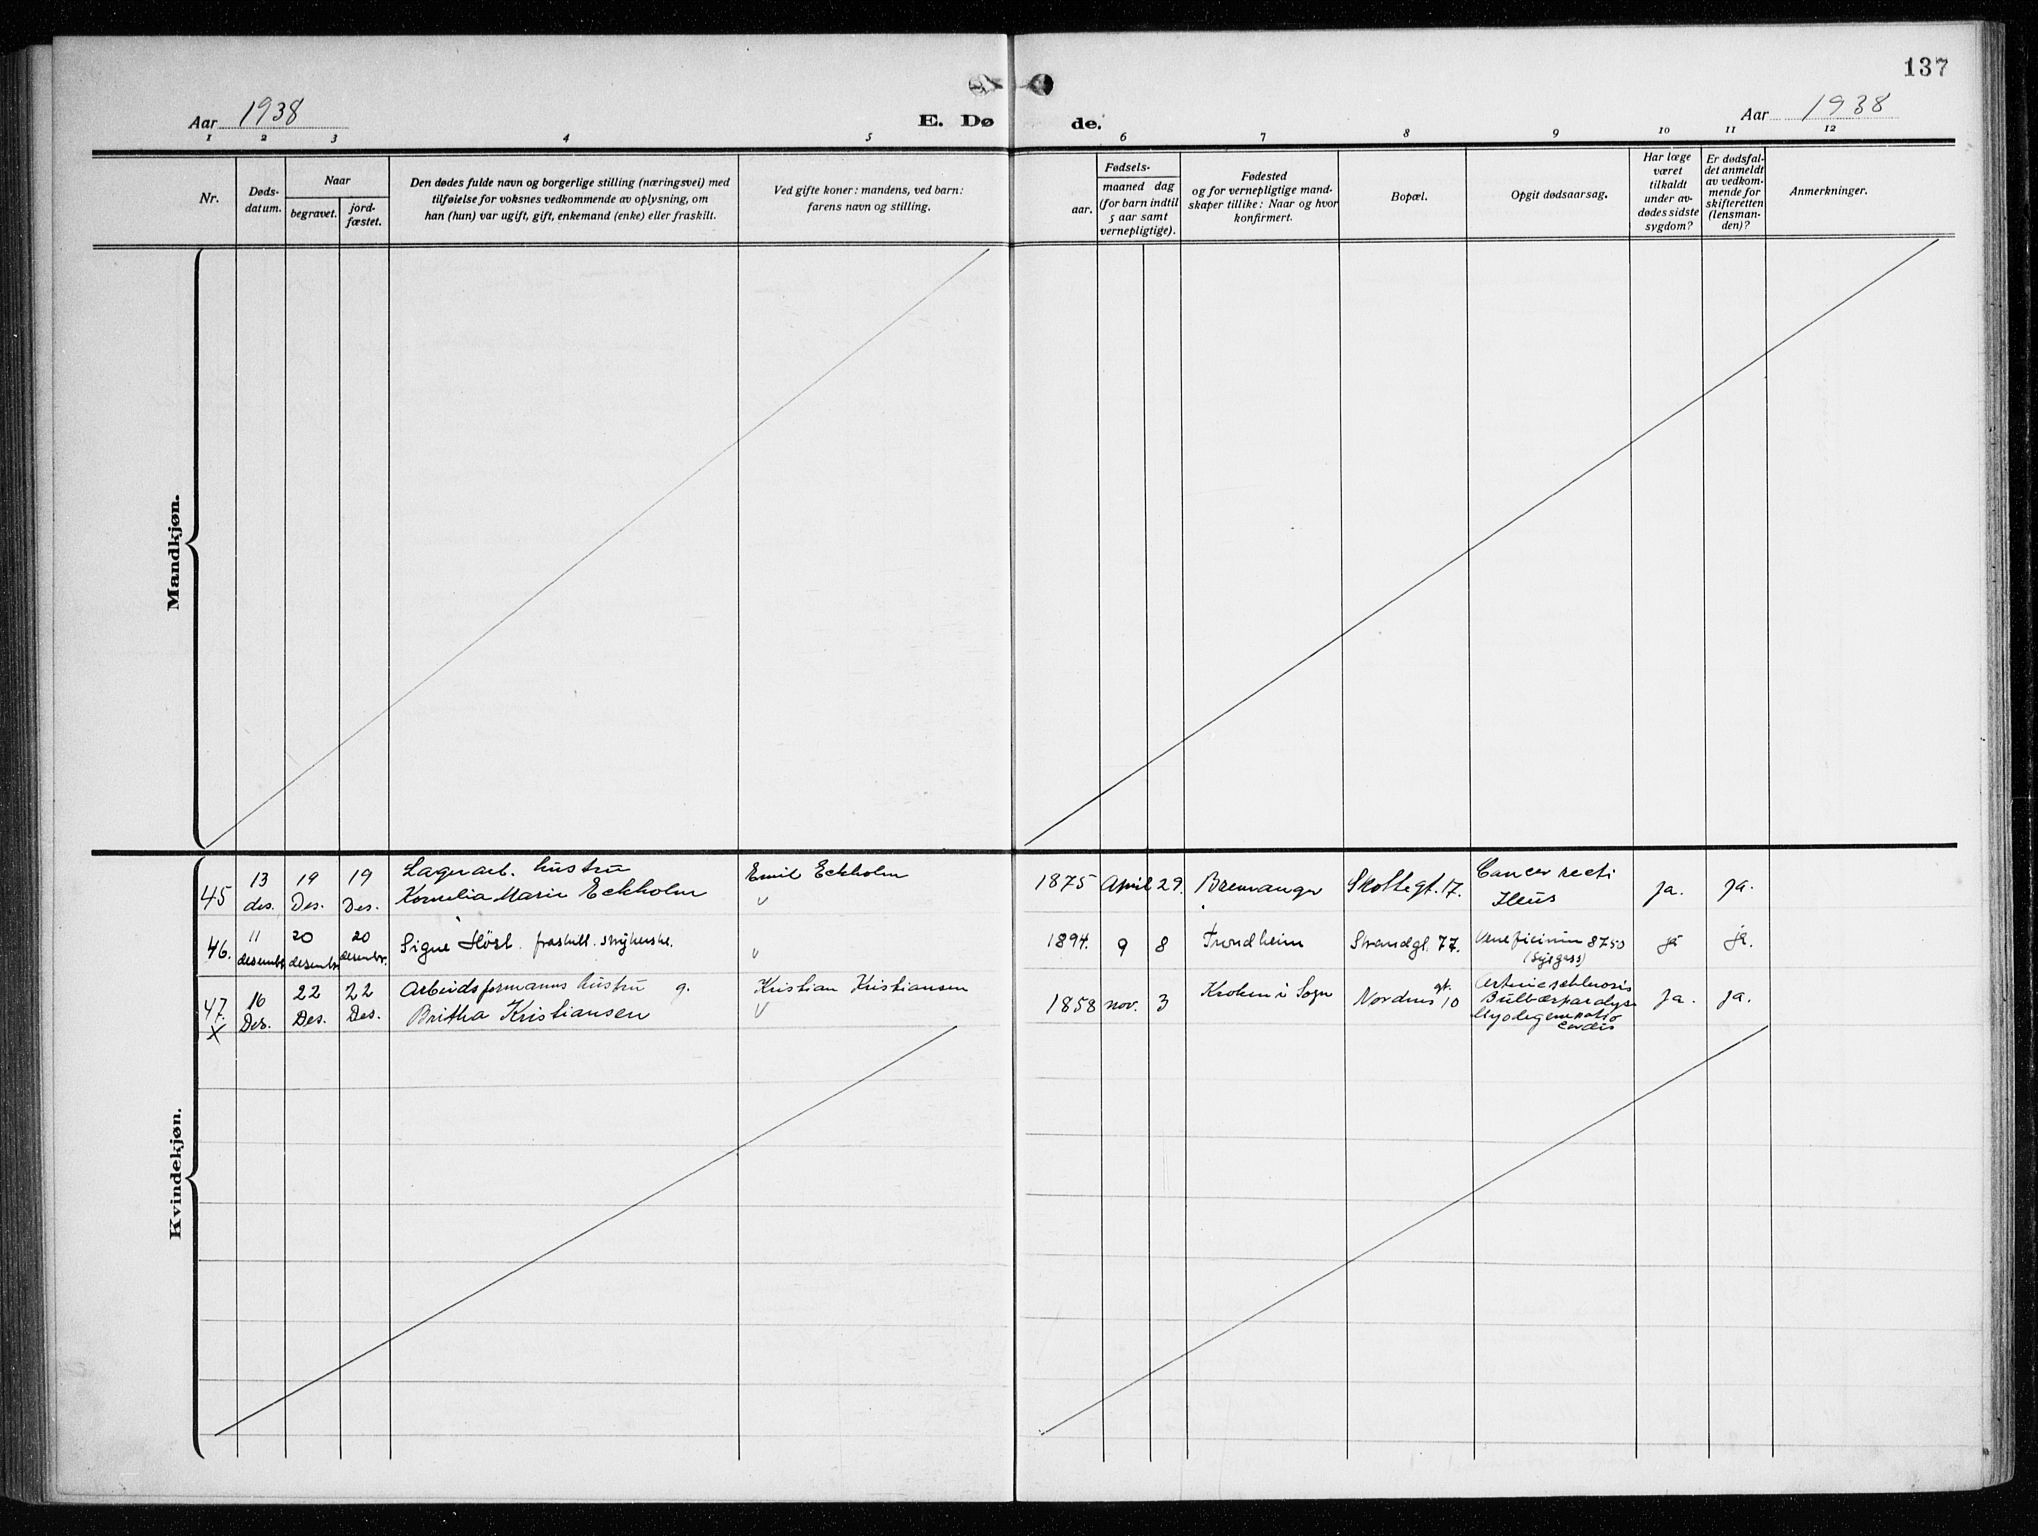 137
Aar 1938
E. Dø de.
Aar 1938
1 2 3 4 5 6 7 8 9 10 11 12
Nr.
Døds-
datum.
Naar
begravet.
jord-
fæstet.
Den dødes fulde navn og borgerlige stilling (næringsvei) med
tilføielse for voksnes vedkommende av oplysning, om
han (hun) var ugift, gift, enkemand (enke) eller fraskilt.
Ved gifte koner: mandens, ved barn:
farens navn og stilling.
Fødsels-
aar.
maaned dag
(for barn indtil
5 aar samt
vernepligtige).
Fødested
og for vernepligtige mand-
skaper tillike: Naar og hvor
konfirmert.
Bopæl.
Opgit dødsaarsag.
Har læge
været
tilkaldt
under av-
dødes sidste
sygdom?
Er dødsfal-
det anmeldt
av vedkom-
mende for
skifteretten
(lensman-
den)?
Anmerkninger.
Mandkjøn.
Kvindekjøn.
45 13 des. 19 Des. 19 Des.
Lagerarb. hustru
Kornelia Marie Eckholm
Emil Eckholm
1875 April 29. Bremanger Skottegt. 17.
Cancer recti
Ileus
ja. ja.
46. 11 desembr. 20 desembr. 20 desembr.
Signe Høst. fraskilt. strykerske.
1894. 9 8 Trondheim Strandgt. 77.
Veneficinium 8750
(Lysgass)
ja ja.
47. 16 Des. 22 Des. 22 Des.
X
Arbeidsformanns hustru g.
Britha Kristiansen
Kristian Kristiansen
1858 nov. 3 Kroken i Sogn Nordnesgt. 10
Arteriesclerosis
Bulbærparalyse
Myodegeneratio
cordis
ja. ja.